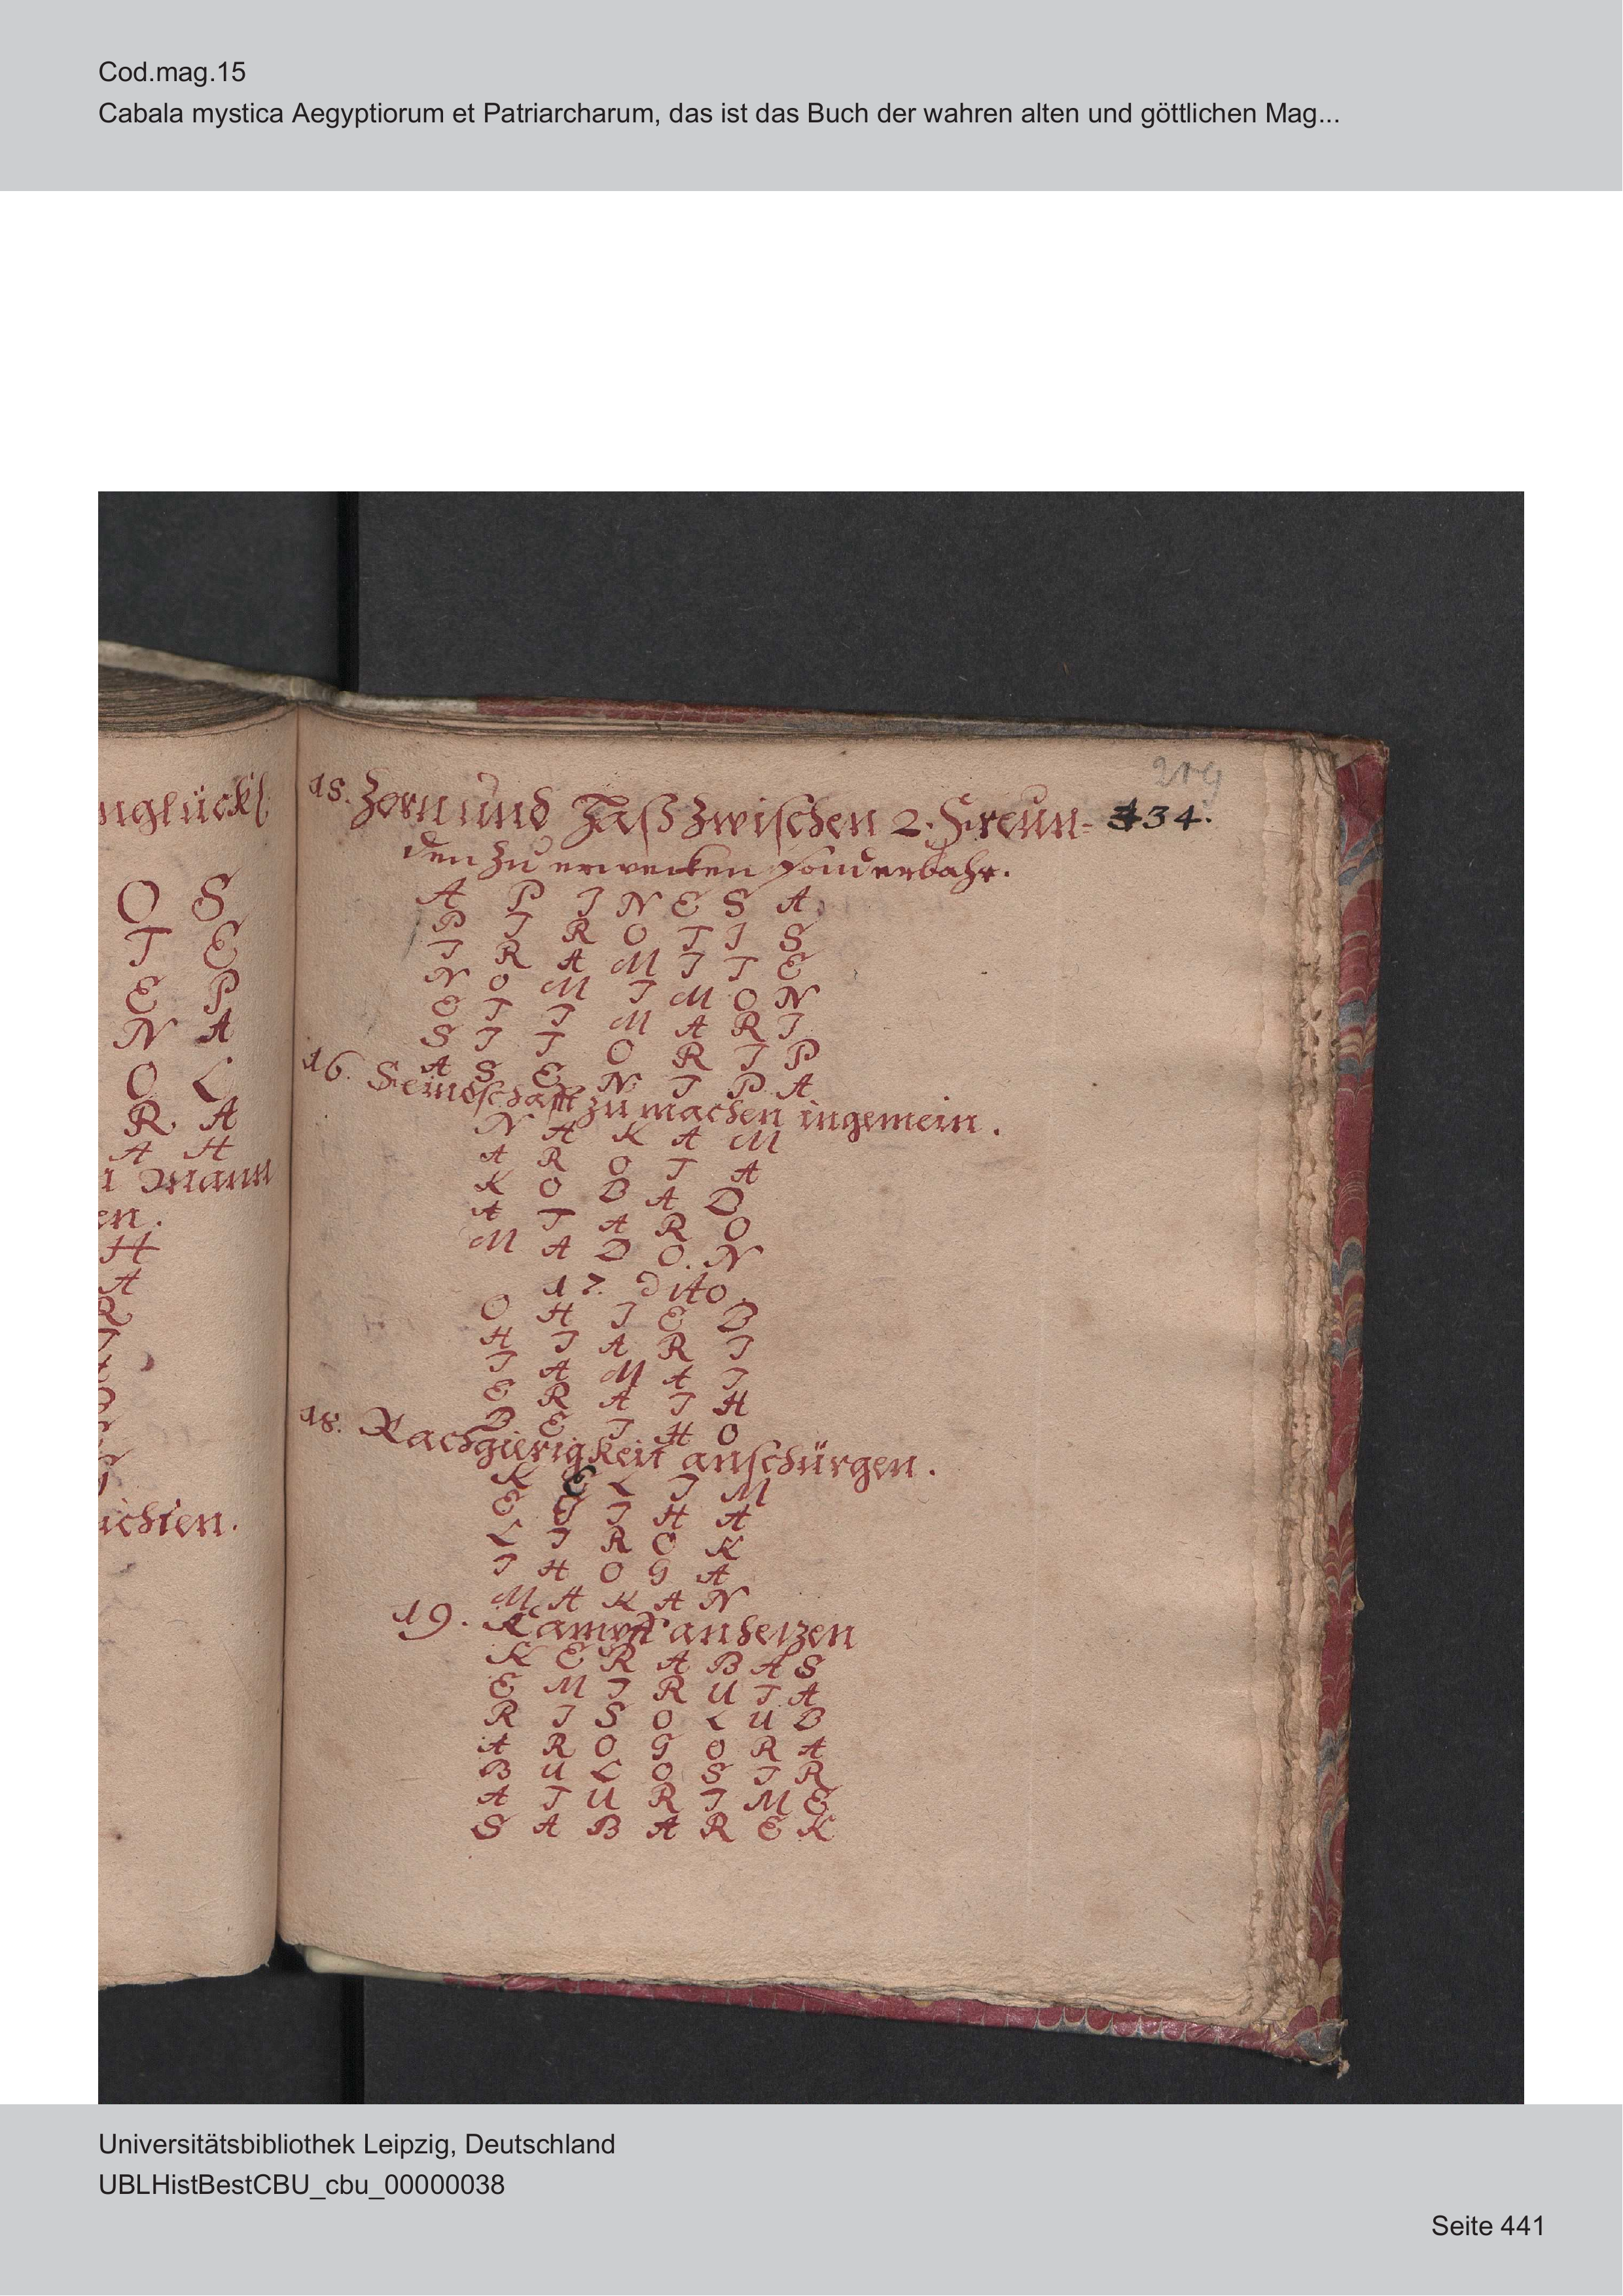 Cod.mag.15
Cabala mystica Aegyptiorum et Patriarcharum, das ist das Buch der wahren alten und göttlichen Mag...
nglückl
O S
T E
E P
N A
O L
R. A
A H
Mann
en.
H
A
R
ichten.
219
434.
15. Zorn und Haß zwischen 2. Freun=
den zu erwecken sonderbahr.
A P I N E S A
P I R O T I S
I R A M I T E
N O M I M O N
E T I M A R I
S I T O R I P
A S E N I P A
16. Feindschafft zu machen ingemein.
N A K A M
A R O T A
K O B A D
A T A R O
M A D O. N
17. Dito.
O H I E B
H I A R I
I A M A I
E R A I H
B E I H O
18. Rachgierigkeit anschürgen.
K E L I M
E I H A
L I R O K
I H O G A
M A K A N
19. Kampff anhetzen
K E R A B A S
E M I R U T A
R I S O L U B
A R O G O R A
B U L O S I R
A T U R I M E
S A B A R E K
Universitätsbibliothek Leipzig, Deutschland
UBLHistBestCBU_cbu_00000038
Seite 441